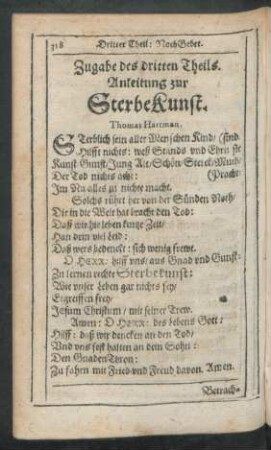 318 Dritter Theil: NochGebet.
Zugabe des dritten Theils.
Anleitung zur
SterbeKunst.
Thomas Hartman.
STerblich sein aller Menschen Kind/ (sind
Hilfft nichts: weß Stands vnd Ehrn sie
Kunst/Gunst/Jung Alt/Schön/Starck/
Der Tod nichts acht: (Pracht
Im Nu alles zu nichte macht.
Solchs rühret her von der Sünden Noth/
Die in die Welt hat bracht den Tod:
Daß wir hie leben kurtze Zeit/
Han dem viel leid:
Daß wers bedenckt: sich wenig frewt.
O HERR: hilff vns/ aus Gnad vnd Gunst:
Zu lernen rechte Sterbekunst:
Wie vnser Leben gar nichts sey/
Ergreiffen frey/
Jesum Christum/ mit seiner Trew.
Amen: O HERR: des lebens Gott/
Hilff: daß wir dencken an den Tod/
Vnd vns fest halten an dein Sohn:
Den GnadenThron:
Zu fahrn mit Fried vnd Freud davon. Amen.
Betrach-